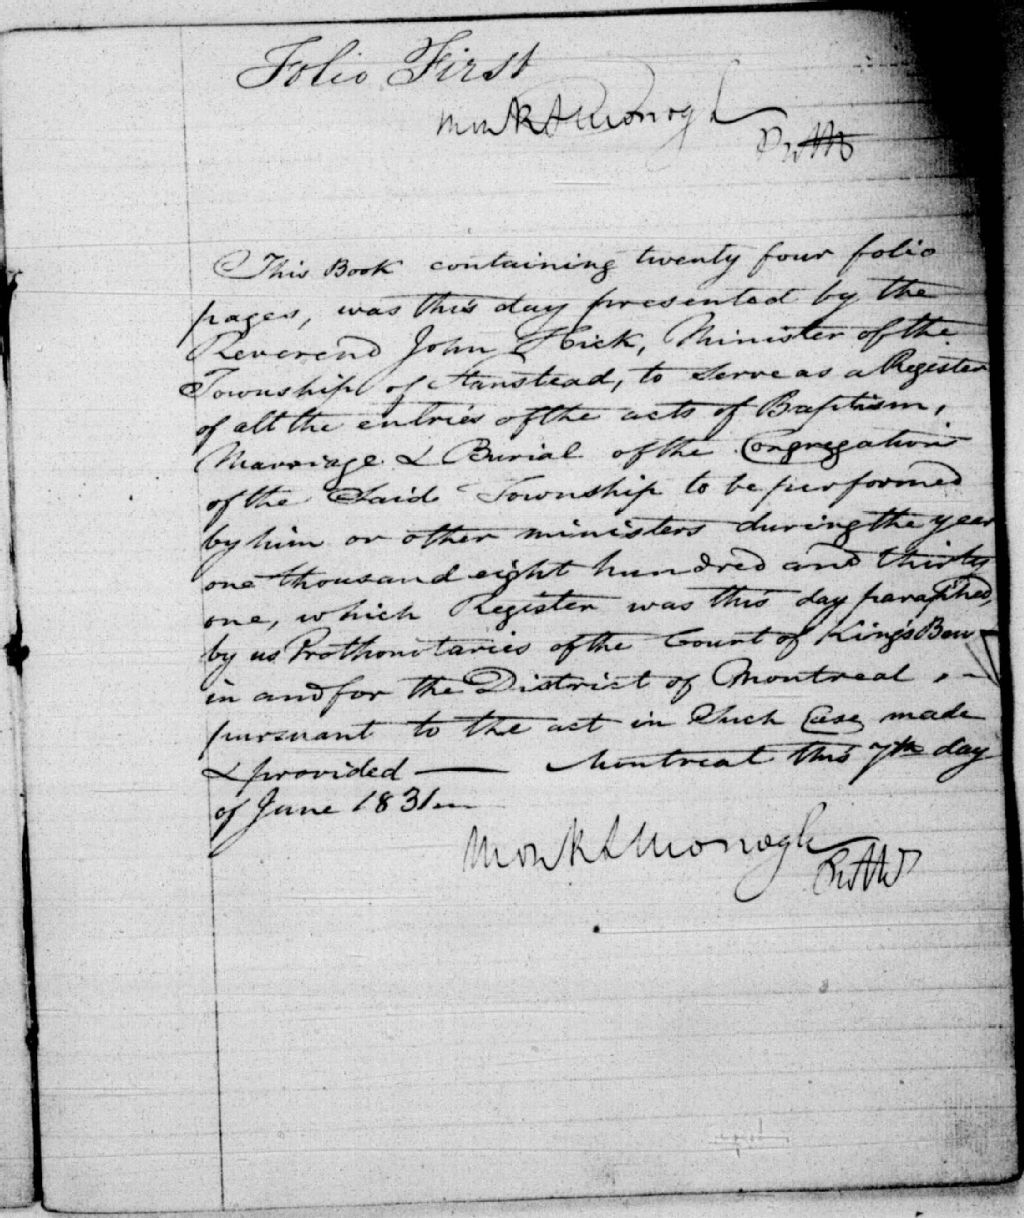 Folio First
Monk & Morrogh
P.K.B.
This Book containing twenty four folio
pages, was this day presented by the
Reverend John Hick, Minister of the
Township of Stanstead, to Serve as a Register
of all the entries of the acts of Baptism,
Marriage & Burial of the Congregation
of the Said Township to be performed
by him or other ministers during the year
one thousand eight hundred and thirty
one, which Register was this day paraphed,
by us Prothonotaries of the Court of King's Ben
in and for the District of Montreal, -
pursuant to the act in Such Case, made
& provided — Montreal this 7th day
of June 1831
Monk & Morrogh